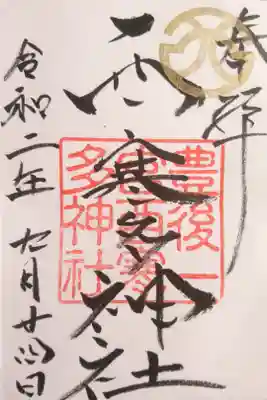 奉拝
西寒多神社
令和二年九月廿四日
豊後一
宮西寒
多神社